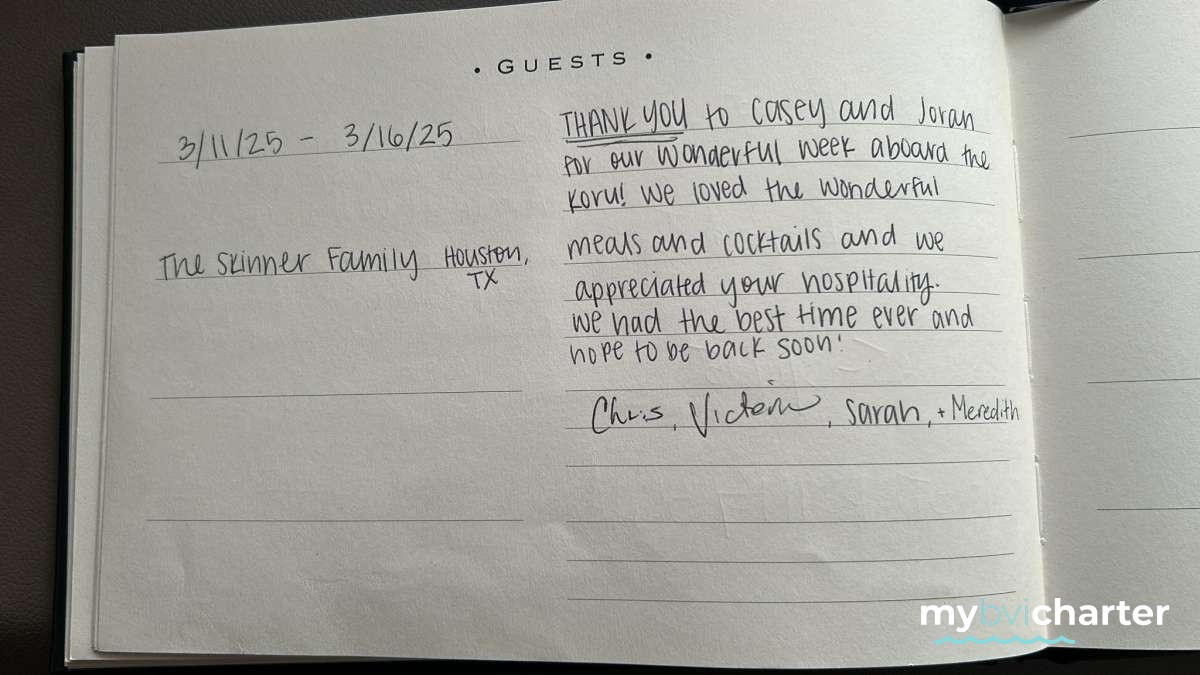 • GUESTS •
3/11/25 - 3/16/25
The Skinner Family Houston,
TX
THANK YOU to Casey and Joran
for our wonderful week aboard the
Koru! We loved the wonderful
meals and cocktails and we
appreciated your hospitality.
We had the best time ever and
hope to be back soon!
Chris, Victoria, Sarah, + Meredith
mybvicharter